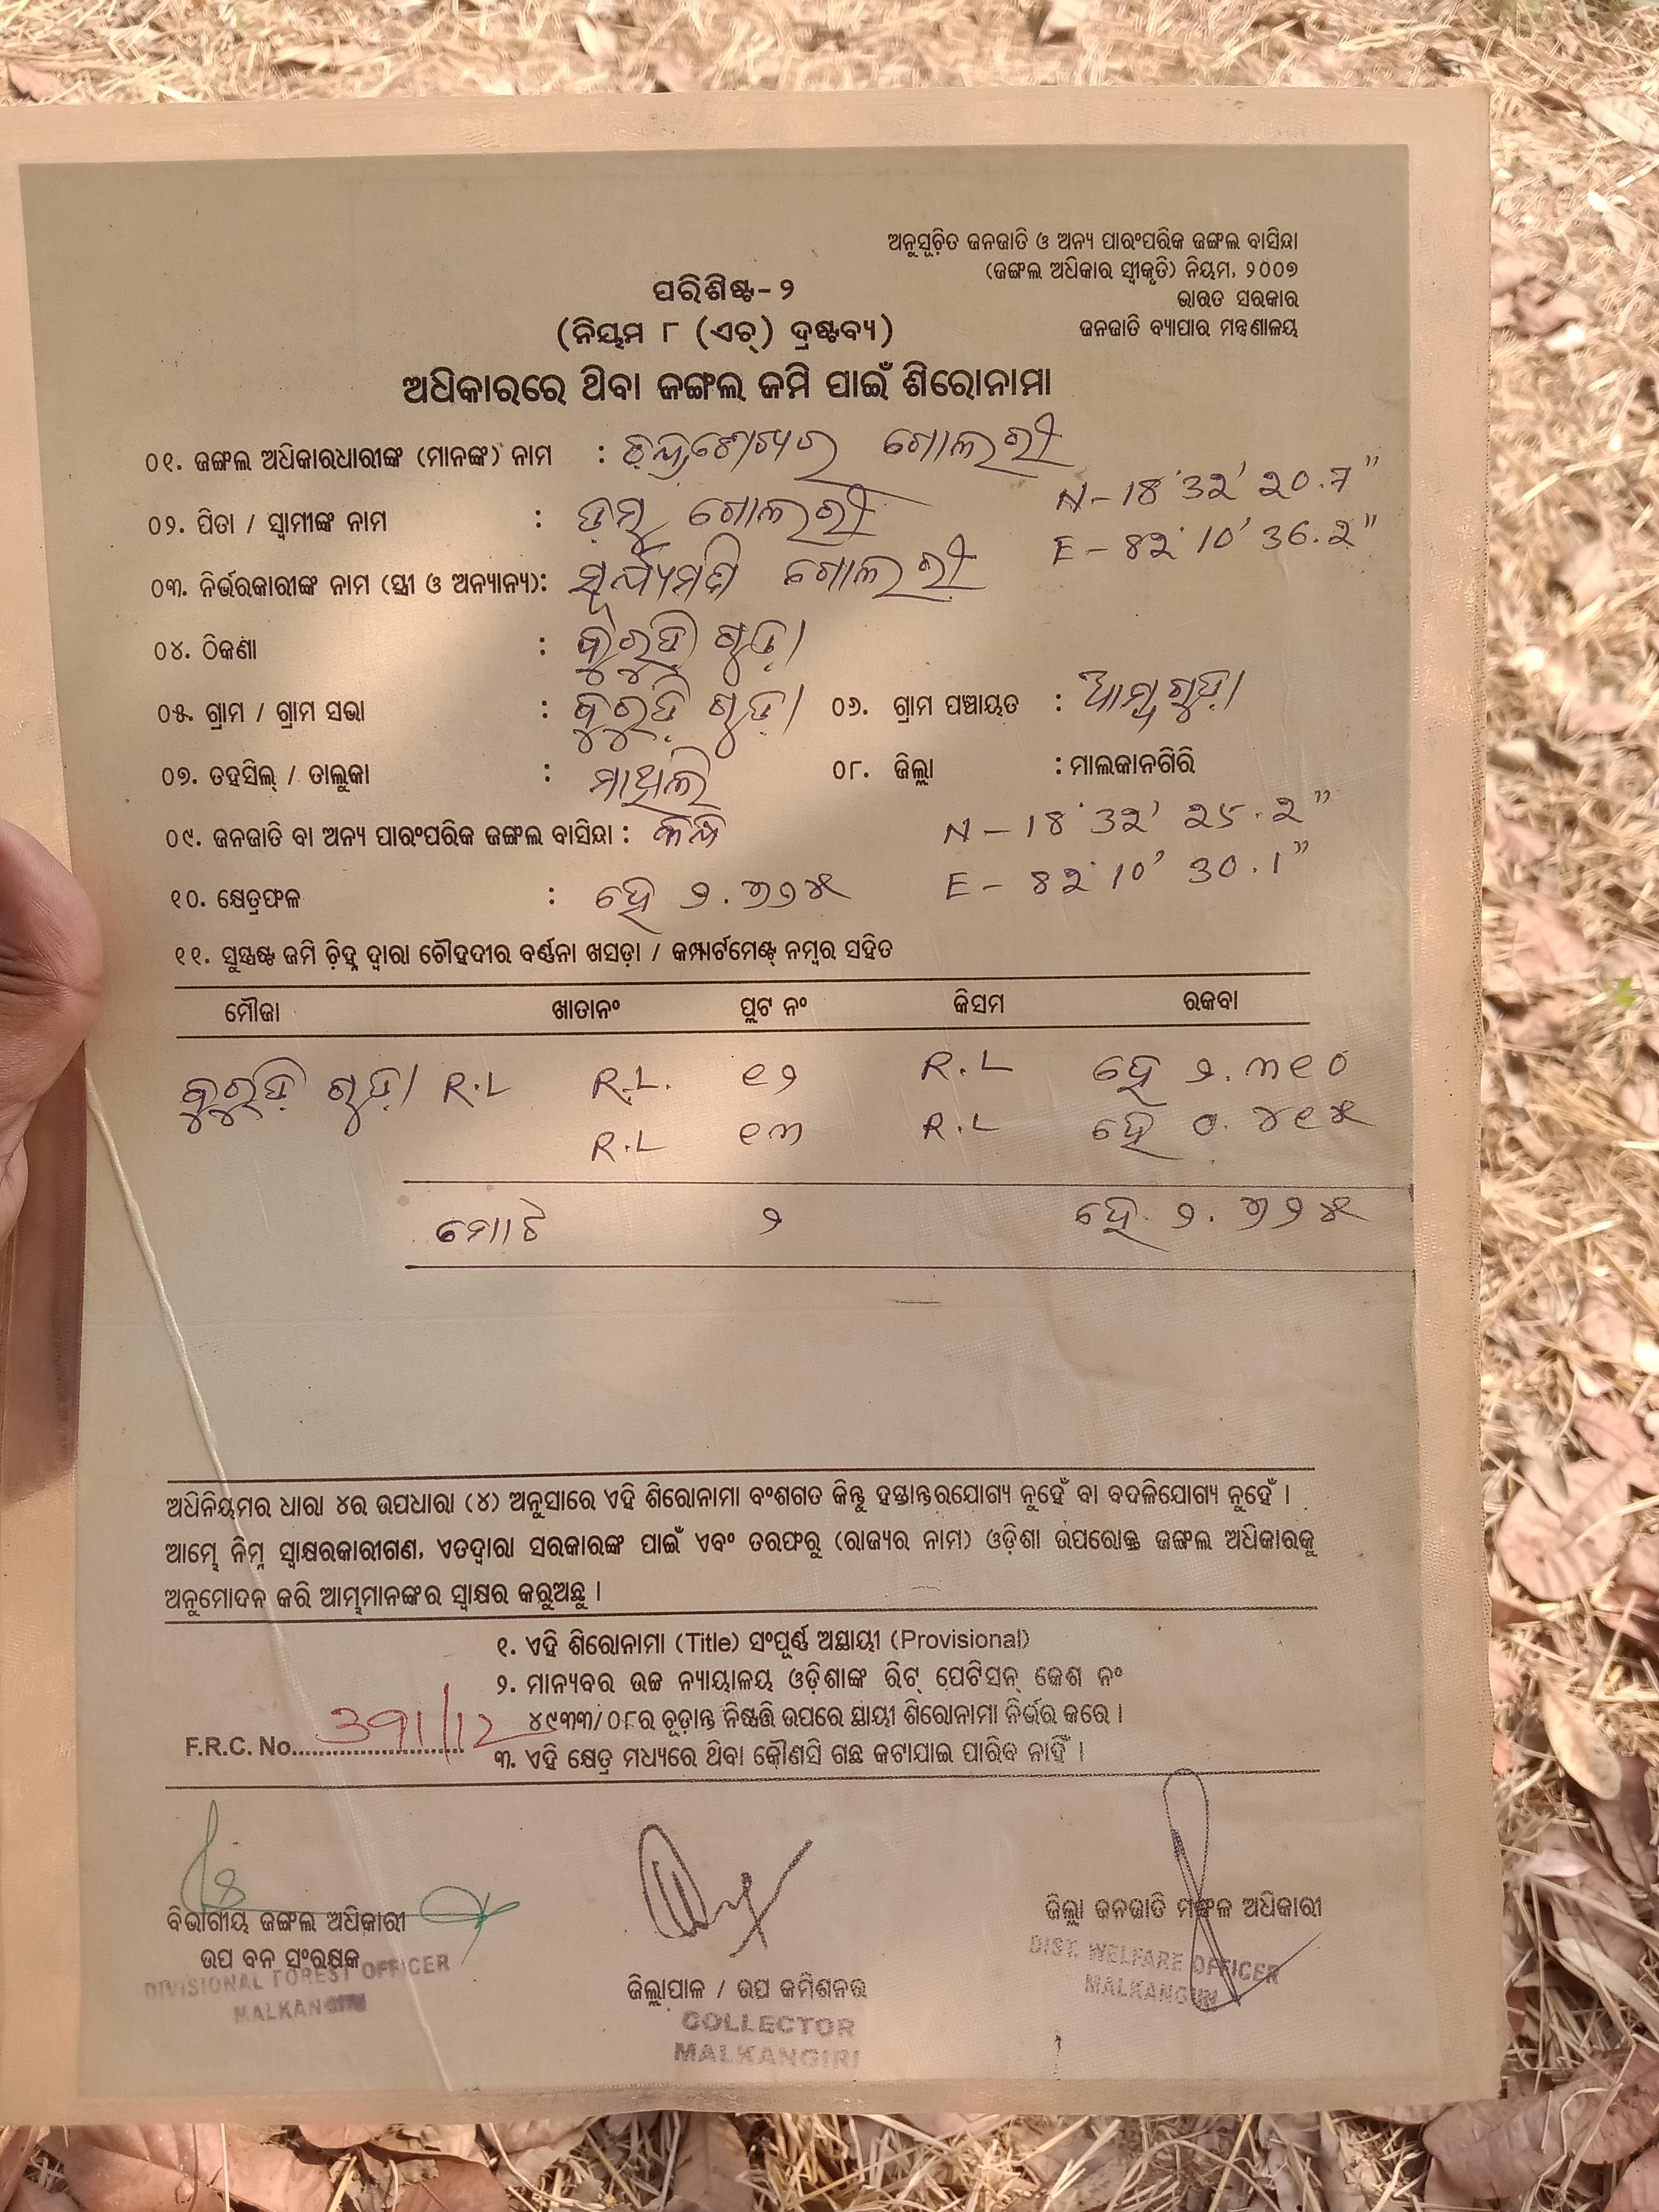 ଅନୁସୂଚିତ ଜନଜାତି ଓ ଅନ୍ୟ ପାରଂପରିକ ଜଙ୍ଗଲ ବାସିନ୍ଦା
(ଜଙ୍ଗଲ ଅଧିକାର ସ୍ୱୀକୃତି) ନିୟମ, ୨୦୦୭
ଭାରତ ସରକାର
ଜନଜାତି ବ୍ୟାପାର ମନ୍ତ୍ରଣାଳୟ
ପରିଶିଷ୍ଟ-୨
(ନିୟମ ୮ (ଏଚ୍) ଦ୍ରଷ୍ଟବ୍ୟ)
ଅଧିକାରରେ ଥିବା ଜଙ୍ଗଲ ଜମି ପାଇଁ ଶିରୋନାମା
୦୧. ଜଙ୍ଗଲ ଅଧିକାରଧାରୀଙ୍କ (ମାନଙ୍କ) ନାମ : ଚନ୍ଦ୍ରଶେଖର ଗୋଲରୀ
N-18°32'20.7"
୦୨. ପିତା / ସ୍ୱାମୀଙ୍କ ନାମ : ଡମୁ ଗୋଲରୀ
E-82°10'36.2"
୦୩. ନିର୍ଭରକାରୀଙ୍କ ନାମ (ସ୍ତ୍ରୀ ଓ ଅନ୍ୟାନ୍ୟ): ସୂର୍ଯ୍ୟମଣି ଗୋଲରୀ
୦୪. ଠିକଣା :
୦୫. ଗ୍ରାମ / ଗ୍ରାମ ସଭା : ୦୬. ଗ୍ରାମ ପଞ୍ଚାୟତ : ଆମ୍ବଗୁଡ଼ା
୦୭. ତହସିଲ୍ / ତାଲୁକା : ମାଥିଲି ୦୮. ଜିଲ୍ଲା : ମାଲକାନଗିରି
୦୯. ଜନଜାତି ବା ଅନ୍ୟ ପାରଂପରିକ ଜଙ୍ଗଲ ବାସିନ୍ଦା : N-18°32'25.2"
୧୦. କ୍ଷେତ୍ରଫଳ : ହେ ୨.୭୨୫ E-82°10'30.1"
୧୧. ସୁସ୍ପଷ୍ଟ ଜମି ଚିହ୍ନ ଦ୍ୱାରା ଚୌହଦୀର ବର୍ଣ୍ଣନା ଖସଡ଼ା / କମ୍ପାର୍ଟମେଣ୍ଟ୍ ନମ୍ବର ସହିତ
ମୌଜା ଖାତାନଂ ପ୍ଲଟ ନଂ କିସମ ରକବା
R.L R.L. ୧୨ R.L ହେ ୨.୩୧୦
R.L ୧୩ R.L ହେ ୦.୪୧୫
ମୋଟ ୨ ହେ. ୨.୭୨୫
ଅଧିନିୟମର ଧାରା ୪ର ଉପଧାରା (୪) ଅନୁସାରେ ଏହି ଶିରୋନାମା ବଂଶଗତ କିନ୍ତୁ ହସ୍ତାନ୍ତରଯୋଗ୍ୟ ନୁହେଁ ବା ବଦଳିଯୋଗ୍ୟ ନୁହେଁ ।
ଆମ୍ଭେ ନିମ୍ନ ସ୍ୱାକ୍ଷରକାରୀଗଣ, ଏତଦ୍ୱାରା ସରକାରଙ୍କ ପାଇଁ ଏବଂ ତରଫରୁ (ରାଜ୍ୟର ନାମ) ଓଡ଼ିଶା ଉପରୋକ୍ତ ଜଙ୍ଗଲ ଅଧିକାରକୁ
ଅନୁମୋଦନ କରି ଆମ୍ଭମାନଙ୍କର ସ୍ୱାକ୍ଷର କରୁଅଛୁ ।
୧. ଏହି ଶିରୋନାମା (Title) ସଂପୂର୍ଣ୍ଣ ଅସ୍ଥାୟୀ (Provisional)
୨. ମାନ୍ୟବର ଉଚ୍ଚ ନ୍ୟାୟାଳୟ ଓଡ଼ିଶାଙ୍କ ରିଟ୍ ପେଟିସନ୍ କେଶ ନଂ
୪୯୩୩/୦୮ର ଚୂଡ଼ାନ୍ତ ନିଷ୍ପତ୍ତି ଉପରେ ସ୍ଥାୟୀ ଶିରୋନାମା ନିର୍ଭର କରେ ।
F.R.C. No. 391/12
୩. ଏହି କ୍ଷେତ୍ର ମଧ୍ୟରେ ଥିବା କୌଣସି ଗଛ କଟାଯାଇ ପାରିବ ନାହିଁ ।
ବିଭାଗୀୟ ଜଙ୍ଗଲ ଅଧିକାରୀ
ଉପ ବନ ସଂରକ୍ଷକ
DIVISIONAL FOREST OFFICER
MALKANGIRI
ଜିଲ୍ଲାପାଳ / ଉପ କମିଶନର
COLLECTOR
MALKANGIRI
ଜିଲ୍ଲା ଜନଜାତି ମଙ୍ଗଳ ଅଧିକାରୀ
DIST. WELFARE OFFICER
MALKANGIRI